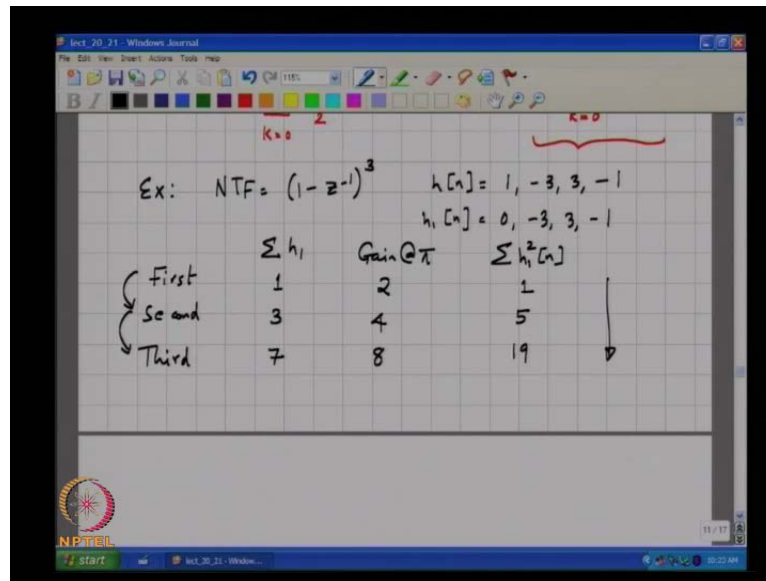 lect_20_21 - Windows Journal
File Edit View Insert Actions Tools Help
115%
B I
K=0 2 K=0
Ex: NTF = (1 - z^-1)^3 h[n] = 1, -3, 3, -1
h1[n] = 0, -3, 3, -1
Σ h1 Gain@π Σ h1²[n]
First 1 2 1
Second 3 4 5
Third 7 8 19
NPTEL
11 / 17
start lect_20_21 - Window... 10:23 AM